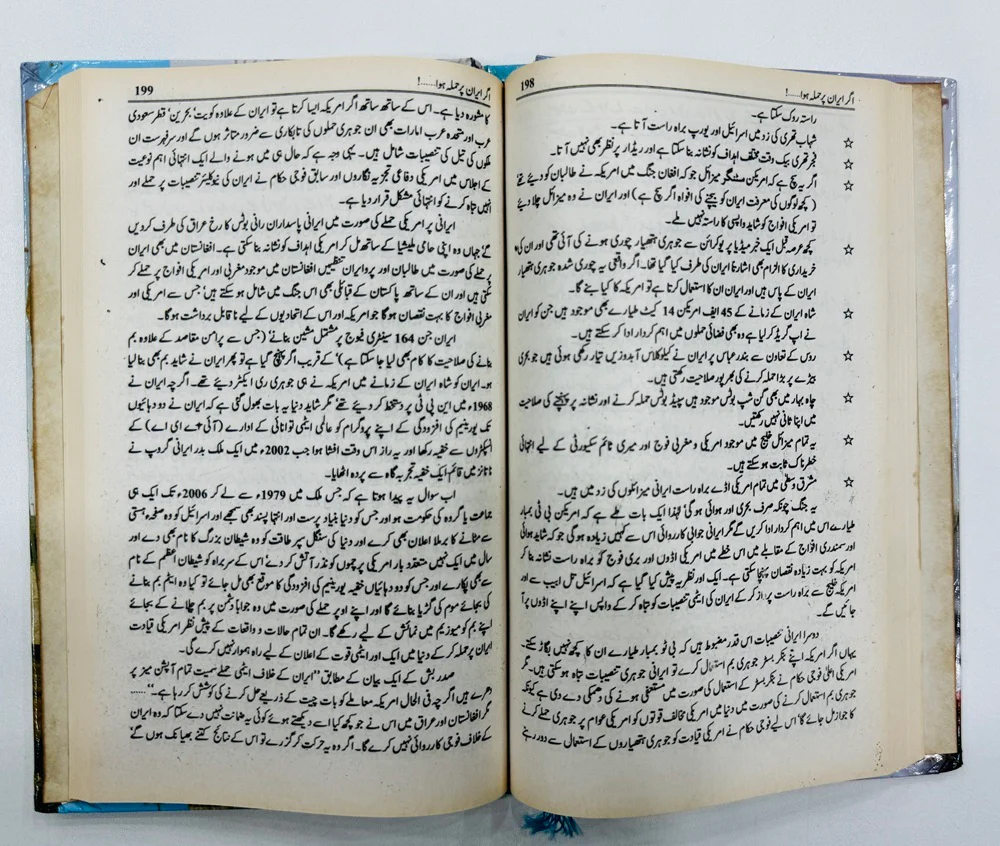 198
اگر ایران پر حملہ ہوا......!
راستہ روک سکتا ہے۔
☆ شہاب تھری کی زد میں اسرائیل اور یورپ براہ راست آتا ہے۔
☆ فجر تھری بیک وقت مختلف اہداف کو نشانہ بنا سکتا ہے اور ریڈار پر نظر بھی نہیں آتا۔
☆ اگر یہ سچ ہے کہ امریکن سٹنگر میزائل جو کہ افغان جنگ میں امریکہ نے طالبان کو دیئے تھے
( کچھ لوگوں کی معرفت ایران کو بیچے کی افواہ اگر سچ ہے) اور ایران نے وہ میزائل چلا دیئے
تو امریکی افواج کو شاید واپسی کا راستہ نہیں ملے۔
☆ کچھ عرصہ قبل ایک خبر میڈیا پر یوکرائن سے جوہری ہتھیار چوری ہونے کی آئی تھی اور ان کی
خریداری کا الزام بھی اشارتاً ایران کی طرف کیا گیا تھا۔ اگر واقعی یہ چوری شدہ جوہری ہتھیار
ایران کے پاس ہیں اور ایران ان کا استعمال کرتا ہے تو امریکہ کا کیا بنے گا۔
☆ شاہ ایران کے زمانے کے 45 ایف امریکن 14 کیٹ طیارے بھی موجود ہیں جن کو ایران
نے اپ گریڈ کر لیا ہے وہ بھی فضائی حملوں میں اہم کردار ادا کر سکتے ہیں۔
☆ روس کے تعاون سے بندر عباس پر ایران نے کیلوکلاس آبدوزیں تیار رکھی ہوئی ہیں جو بحری
بیڑے پر بڑا حملہ کرنے کی بھرپور صلاحیت رکھتی ہیں۔
☆ چاہ بہار میں بھی گن شپ بوٹس موجود ہیں سپیڈ بوٹس حملہ کرنے اور نشانہ پر پہنچنے کی صلاحیت
میں اپنا ثانی نہیں رکھتیں۔
☆ یہ تمام میزائل خلیج میں موجود امریکی و مغربی فوج اور میری ٹائم سکیورٹی کے لیے انتہائی
خطرناک ثابت ہو سکتے ہیں۔
☆ مشرق وسطیٰ میں تمام امریکی اڈے براہ راست ایرانی میزائلوں کی زد میں ہیں۔
یہ جنگ چونکہ صرف بحری اور ہوائی ہو گی' لہٰذا ایک بات طے ہے کہ امریکن بی ٹی بمبار
طیارے اس میں اہم کردار ادا کریں گے مگر ایرانی جوابی کارروائی اس سے کہیں زیادہ ہو گی جو کہ شاید ہوائی
اور سمندری افواج کے مقابلے میں اس خطے میں امریکی اڈوں اور بری فوج کو براہ راست نشانہ بنا کر
امریکہ کو بہت زیادہ نقصان پہنچا سکتی ہے۔ ایک اور نظریہ پیش کیا گیا ہے کہ اسرائیل تل ابیب سے اور
امریکہ خلیج سے براہ راست پرواز کر کے ایران کی ایٹمی تنصیبات کو تباہ کر کے واپس اپنے اپنے اڈوں پر آ
جائیں گے۔
دوسرا ایرانی تنصیبات اس قدر مضبوط ہیں کہ بی ٹو بمبار طیارے ان کا کچھ نہیں بگاڑ سکتے۔
یہاں اگر امریکہ اپنے بنکر بسٹر جوہری بم استعمال کرے تو ایرانی جوہری تنصیبات تباہ ہو سکتی ہیں۔ مگر
امریکی اعلیٰ فوجی حکام نے بنکر بسٹر کے استعمال کی صورت میں مستعفی ہونے کی دھمکی دے دی ہے کیونکہ
جوہری بم استعمال کرنے کی صورت میں دنیا میں امریکہ مخالف قوتوں کو امریکی عوام پر جوہری حملے کرنے
کا جواز مل جائے گا' اس لیے فوجی حکام نے امریکی قیادت کو جوہری ہتھیاروں کے استعمال سے دور رہنے
199
اگر ایران پر حملہ ہوا......!
کا مشورہ دیا ہے۔ اس کے ساتھ ساتھ اگر امریکہ ایسا کرتا ہے تو ایران کے علاوہ کویت' بحرین' قطر سعودی
عرب اور متحدہ عرب امارات بھی ان جوہری حملوں کی تابکاری سے ضرور متاثر ہوں گے اور سرفہرست ان
ملکوں کی تیل کی تنصیبات شامل ہیں۔ یہی وجہ ہے کہ حال ہی میں ہونے والے ایک انتہائی اہم نوعیت
کے اجلاس میں امریکی دفاعی تجزیہ نگاروں اور سابق فوجی حکام نے ایران کی نیوکلیئر تنصیبات پر حملے اور
انہیں تباہ کرنے کو انتہائی مشکل قرار دیا ہے۔
ایرانی پر امریکی حملے کی صورت میں ایرانی پاسداران رانی بوٹس کا رخ عراق کی طرف کر دیں
گے جہاں وہ اپنی حامی ملیشیا کے ساتھ مل کر امریکی اہداف کو نشانہ بنا سکتی ہے۔ افغانستان میں بھی ایران
پر حملے کی صورت میں طالبان اور پرو ایران تنظیمیں افغانستان میں موجود مغربی اور امریکی افواج پر حملے کر
سکتی ہیں اور ان کے ساتھ پاکستان کے قبائلی بھی اس جنگ میں شامل ہو سکتے ہیں' جس سے امریکی اور
مغربی افواج کا بہت نقصان ہو گا جو امریکہ اور اس کے اتحادیوں کے لیے ناقابل برداشت ہو گا۔
ایران جن 164 سینٹری فیوج پر مشتمل مشین بنائے (جس سے پرامن مقاصد کے علاوہ بم
بنانے کی صلاحیت کا کام بھی لیا جا سکتا ہے)' کے قریب اگر پہنچ گیا ہے تو پھر ایران نے شاید بم بھی بنا لیا
ہو۔ ایران کو شاہ ایران کے زمانے میں امریکہ نے ہی جوہری ری ایکٹر دیئے تھے۔ اگر چہ ایران نے
1968ء میں این پی ٹی پر دستخط کر دیئے تھے' مگر شاید دنیا یہ بات بھول گئی ہے کہ ایران نے دو دہائیوں
تک یورینیم کی افزودگی کے اپنے پروگرام کو عالمی ایٹمی توانائی کے ادارے (آئی+اے ای اے) کے
انسپکٹروں سے خفیہ رکھا اور یہ راز اس وقت افشا ہوا جب 2002ء میں ایک ملک بدر ایرانی گروپ نے
نانز میں قائم ایک خفیہ تجربہ گاہ سے پردہ اٹھایا۔
اب سوال یہ پیدا ہوتا ہے کہ جس ملک میں 1979ء سے لے کر 2006ء تک ایک ہی
جماعت یا گروہ کی حکومت ہو اور جس کو دنیا بنیاد پرست اور انتہا پسند بھی سمجھے اور اسرائیل کو وہ صفحہ ہستی
سے مٹانے کا برملا اعلان بھی کرے اور دنیا کی سنگل سپر طاقت کو وہ شیطان بزرگ کا نام بھی دے اور
سال میں ایک نہیں متعدد بار امریکی پرچموں کو نذر آتش کر دے' اس کے سربراہ کو شیطان اعظم کے نام
سے بھی پکارے اور جس کو دو دہائیاں خفیہ یورینیم کی افزودگی کا موقع بھی مل جائے تو کیا وہ ایٹم بم بنانے
کی بجائے موم کی گڑیا بنائے گا اور اپنے اوپر حملے کی صورت میں وہ جواباً دشمن پر بم چلانے کے بجائے
اپنے بم کو میوزیم میں نمائش کے لیے رکھے گا۔ ان تمام حالات و واقعات کے پیش نظر امریکی قیادت
ایران پر حملہ کر کے دنیا میں ایک اور ایٹمی قوت کے اعلان کے لیے راہ ہموار نہیں کرے گی۔
صدر بش کے ایک بیان کے مطابق "ایران کے خلاف ایٹمی حملے سمیت تمام آپشن میز پر
دھرے ہیں اگر چہ فی الحال امریکہ معاملے کو بات چیت کے ذریعے حل کرنے کی کوشش کر رہا ہے۔"......
مگر افغانستان اور عراق میں اس نے جو کچھ کیا اسے دیکھتے ہوئے کوئی یہ ضمانت نہیں دے سکتا کہ وہ ایران
کے خلاف فوجی کارروائی نہیں کرے گا۔ اگر وہ یہ حرکت کر گزرے تو اس کے نتائج کتنے بھیانک ہوں گے'